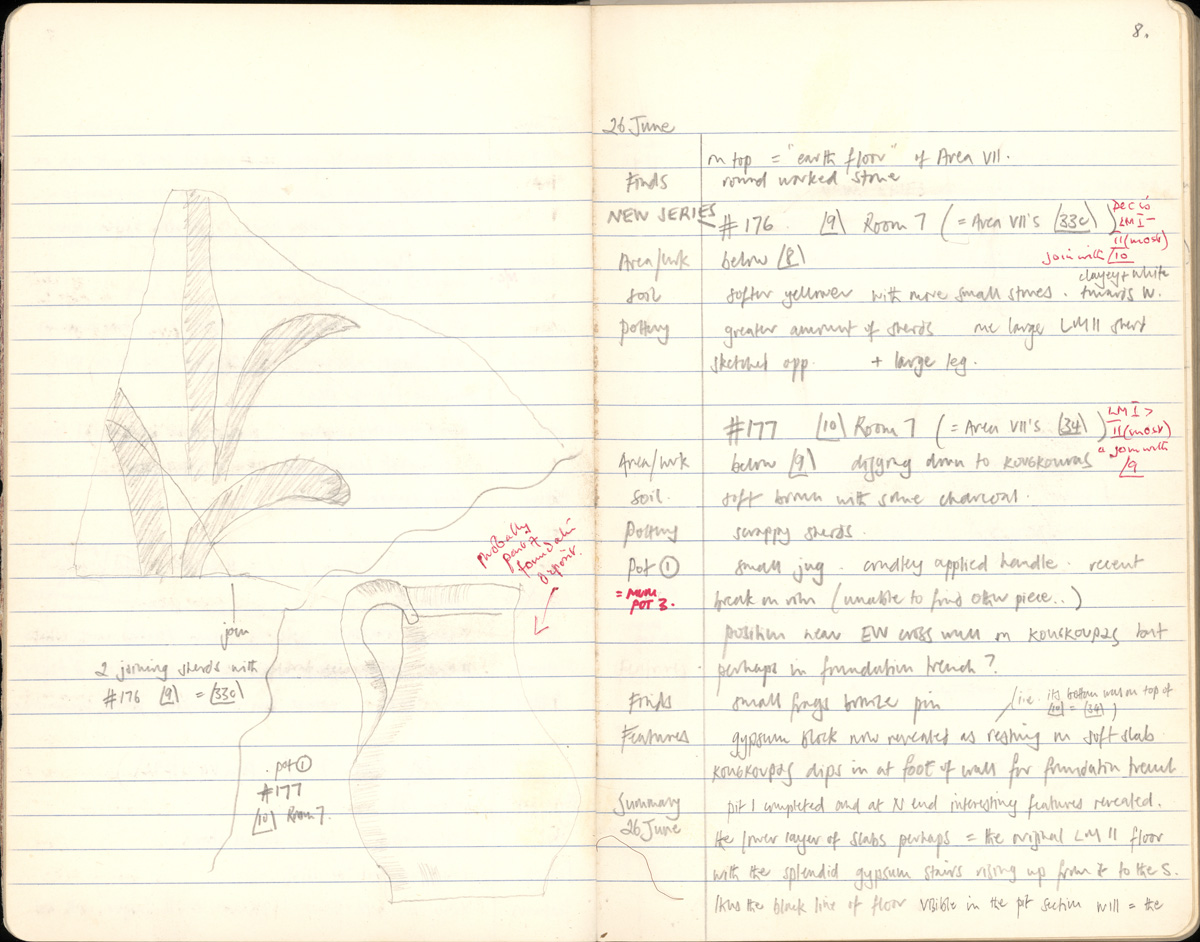 probably
part of
foundation
deposit.
join
2 joining sherds with
#176 [9] = (33c)
pot ①
#177
[10] Room 7.
8.
26 June
on top = "earth floor" of Area VII.
Finds round worked stone
NEW SERIES #176 [9] Room 7 (= Area VII's (33c))
LM I-
II (most)
join with [10]
Area/wk below [8]
clayey + white
Soil softer yellower with more small stones. towards W.
Pottery greater amount of sherds one large LM II sherd
sketched opp. + large leg.
#177 [10] Room 7 (= Area VII's (34))
LM I >
II (most)
a join with
[9]
Area/wk below [9] digging down to kouskouras
Soil. soft brown with some charcoal.
Pottery scrappy sherds.
Pot ① small jug. crudley applied handle. recent
= MUM POT 3.
break on rim (unable to find other piece..)
position near EW cross wall on κουσκουρας but
perhaps in foundation trench?
Finds small frags bronze pin
(i.e. its bottom was on top of
[10] = (34))
Features gypsum block now revealed as resting on soft slab.
κουσκουρας dips in at foot of wall for foundation trench
Summary pit 1 completed and at N end interesting features revealed.
26 June the lower layer of slabs perhaps = the original LM II floor
with the splendid gypsum stairs rising up from it to the S.
thus the black line of floor visible in the pit section will = the